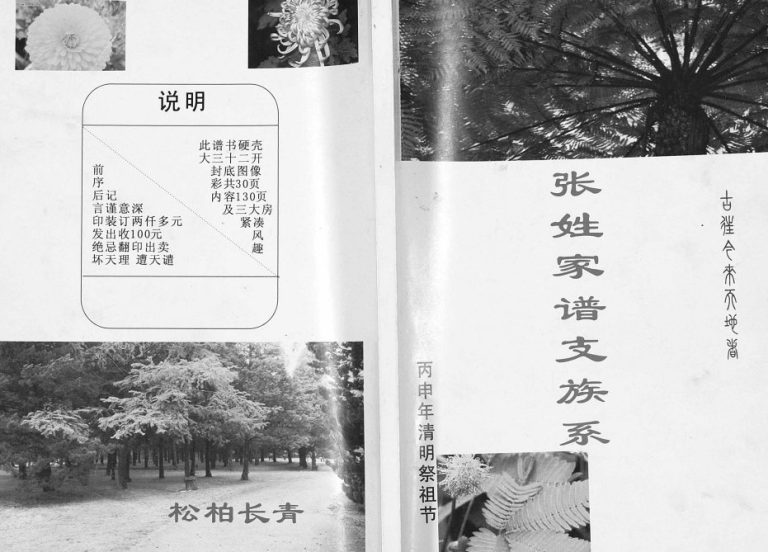 说明
此谱书硬壳
大三十二开
封底图像
彩共30页
内容130页
及三大房
紧凑
风
趣
前
序
后记
言谨意深
印装订两仟多元
发出收100元
绝忌翻印出卖
坏天理 遭天谴
松柏长青
丙申年清明祭祖节
张姓家谱支族系
古往今来天地者